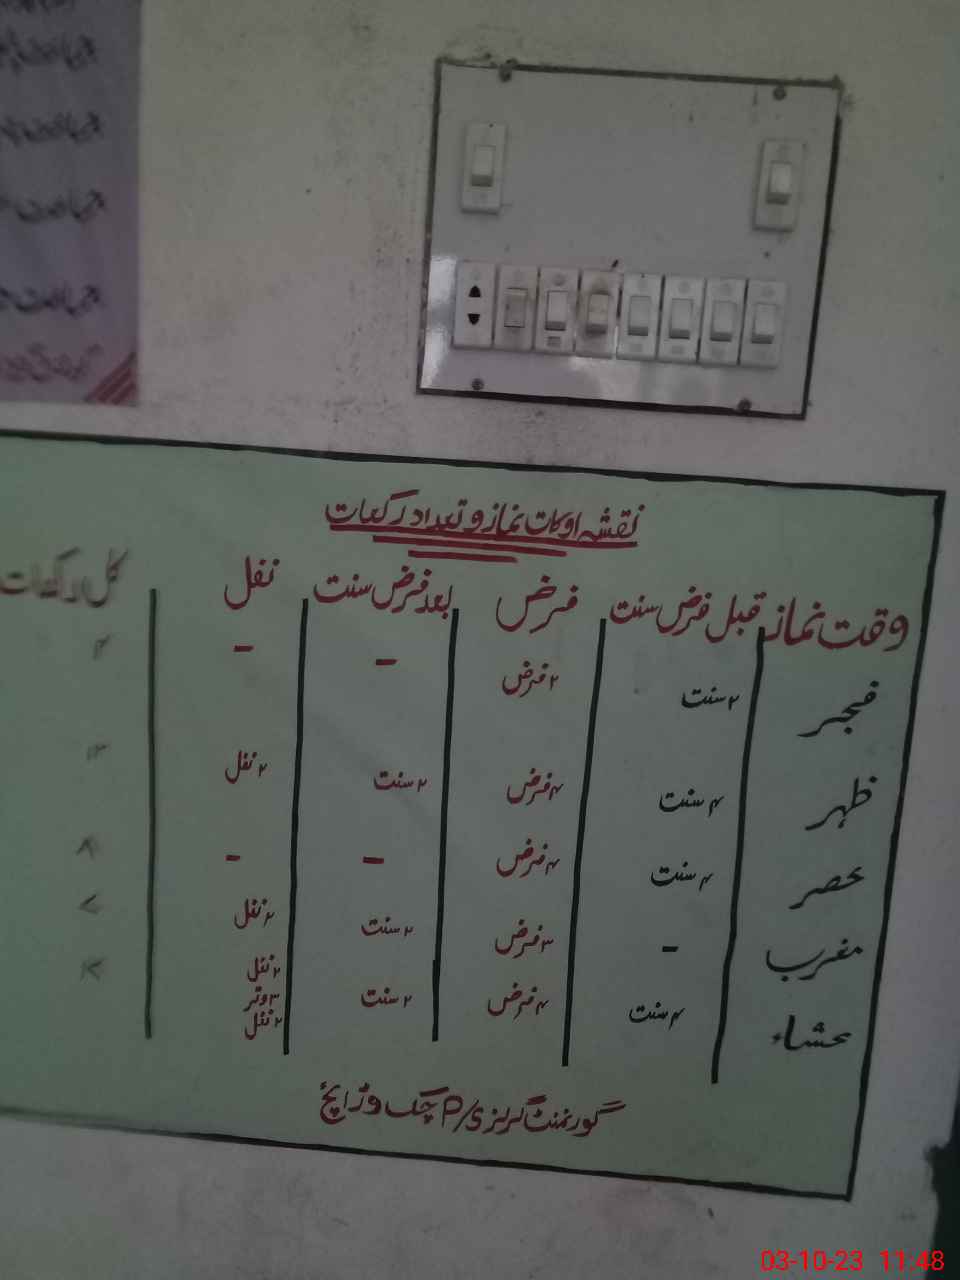 نقشہ اوکات نماز و تعداد رکعات
وقت نماز قبل فرض سنت فرض بعد فرض سنت نفل کل رکعات
فجر ۲ سنت ۲ فرض - - ۴
ظہر ۴ سنت ۴ فرض ۲ سنت ۲ نفل ۱۲
عصر ۴ سنت ۴ فرض - - ۸
مغرب - ۳ فرض ۲ سنت ۲ نفل ۷
عشاء ۴ سنت ۴ فرض ۲ سنت ۲ نفل
۳ وتر
۲ نفل
گورنمنٹ گرلز P/S چک وڑائچ
03-10-23 11:48